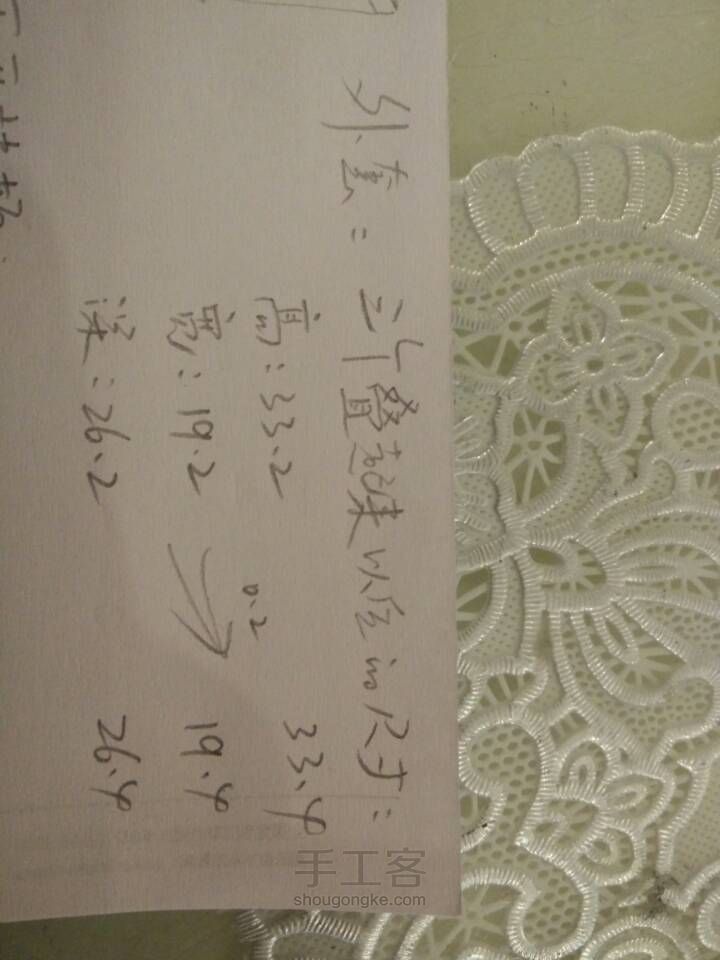 外套：三个叠起来以后的尺寸：
高：33.2 33.4
宽：19.2 0.2 19.4
深：26.2 26.4
手工客
shougongke.com